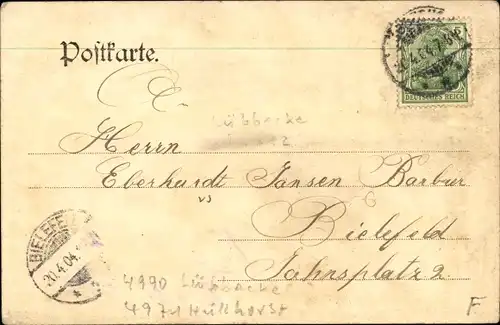 Postkarte.
DEUTSCHES REICH
Lübbecke
2
Herrn
Eberhardt Jansen Barbur
vs
6
Bielefeld
Jahnsplatz 2.
BIELEFELD
20.4.04.
4990 Lübbecke
4971 Hüllhorst
F